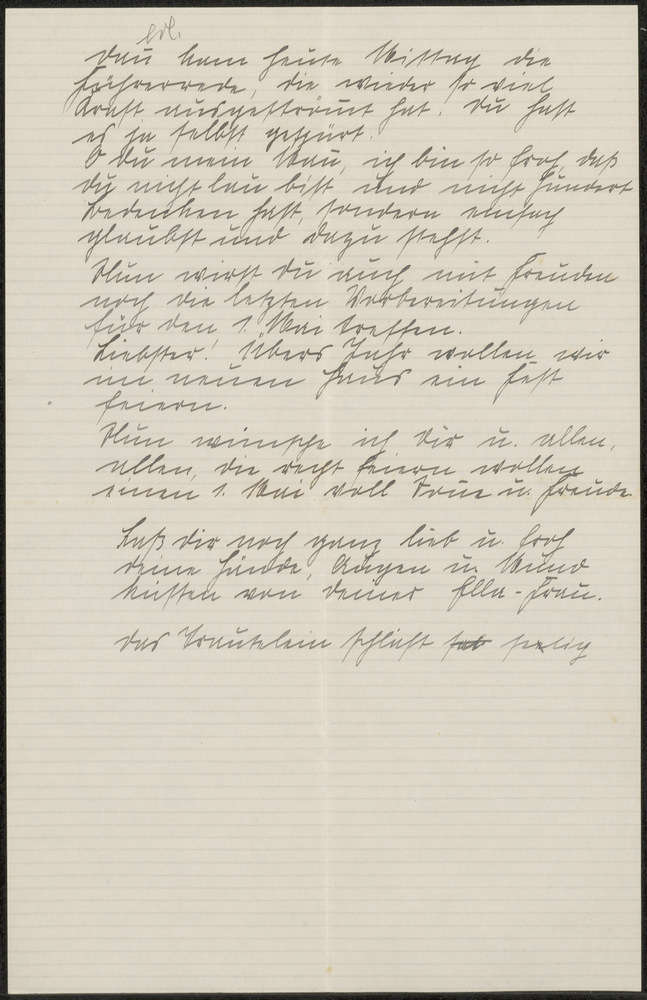 erl.
Dan kam heute Mittag die
Führerrede, die wieder so viel
Kraft ausgeströmt hat. Du hast
es ja selbst gespürt.
O du mein Man, ich bin so froh, daß
du nicht lau bist und nicht hundert
Bedenken hast, sondern einfach
glaubst und dazu stehst.
Nun wirst du auch mit Freuden
noch die letzten Vorbereitungen
für den 1. Mai treffen.
Liebster! Übers Jahr wollen wir
im neuen Haus ein Fest
feiern.
Nun wünsche ich dir u. allen,
allen, die recht feiern wollen
einen 1. Mai voll u. Freude.
Laß dir noch ganz lieb u. froh
deine Hände, Augen u. Mund
küssen von deiner Ella-Frau.
Das Trautelein schläft seelig